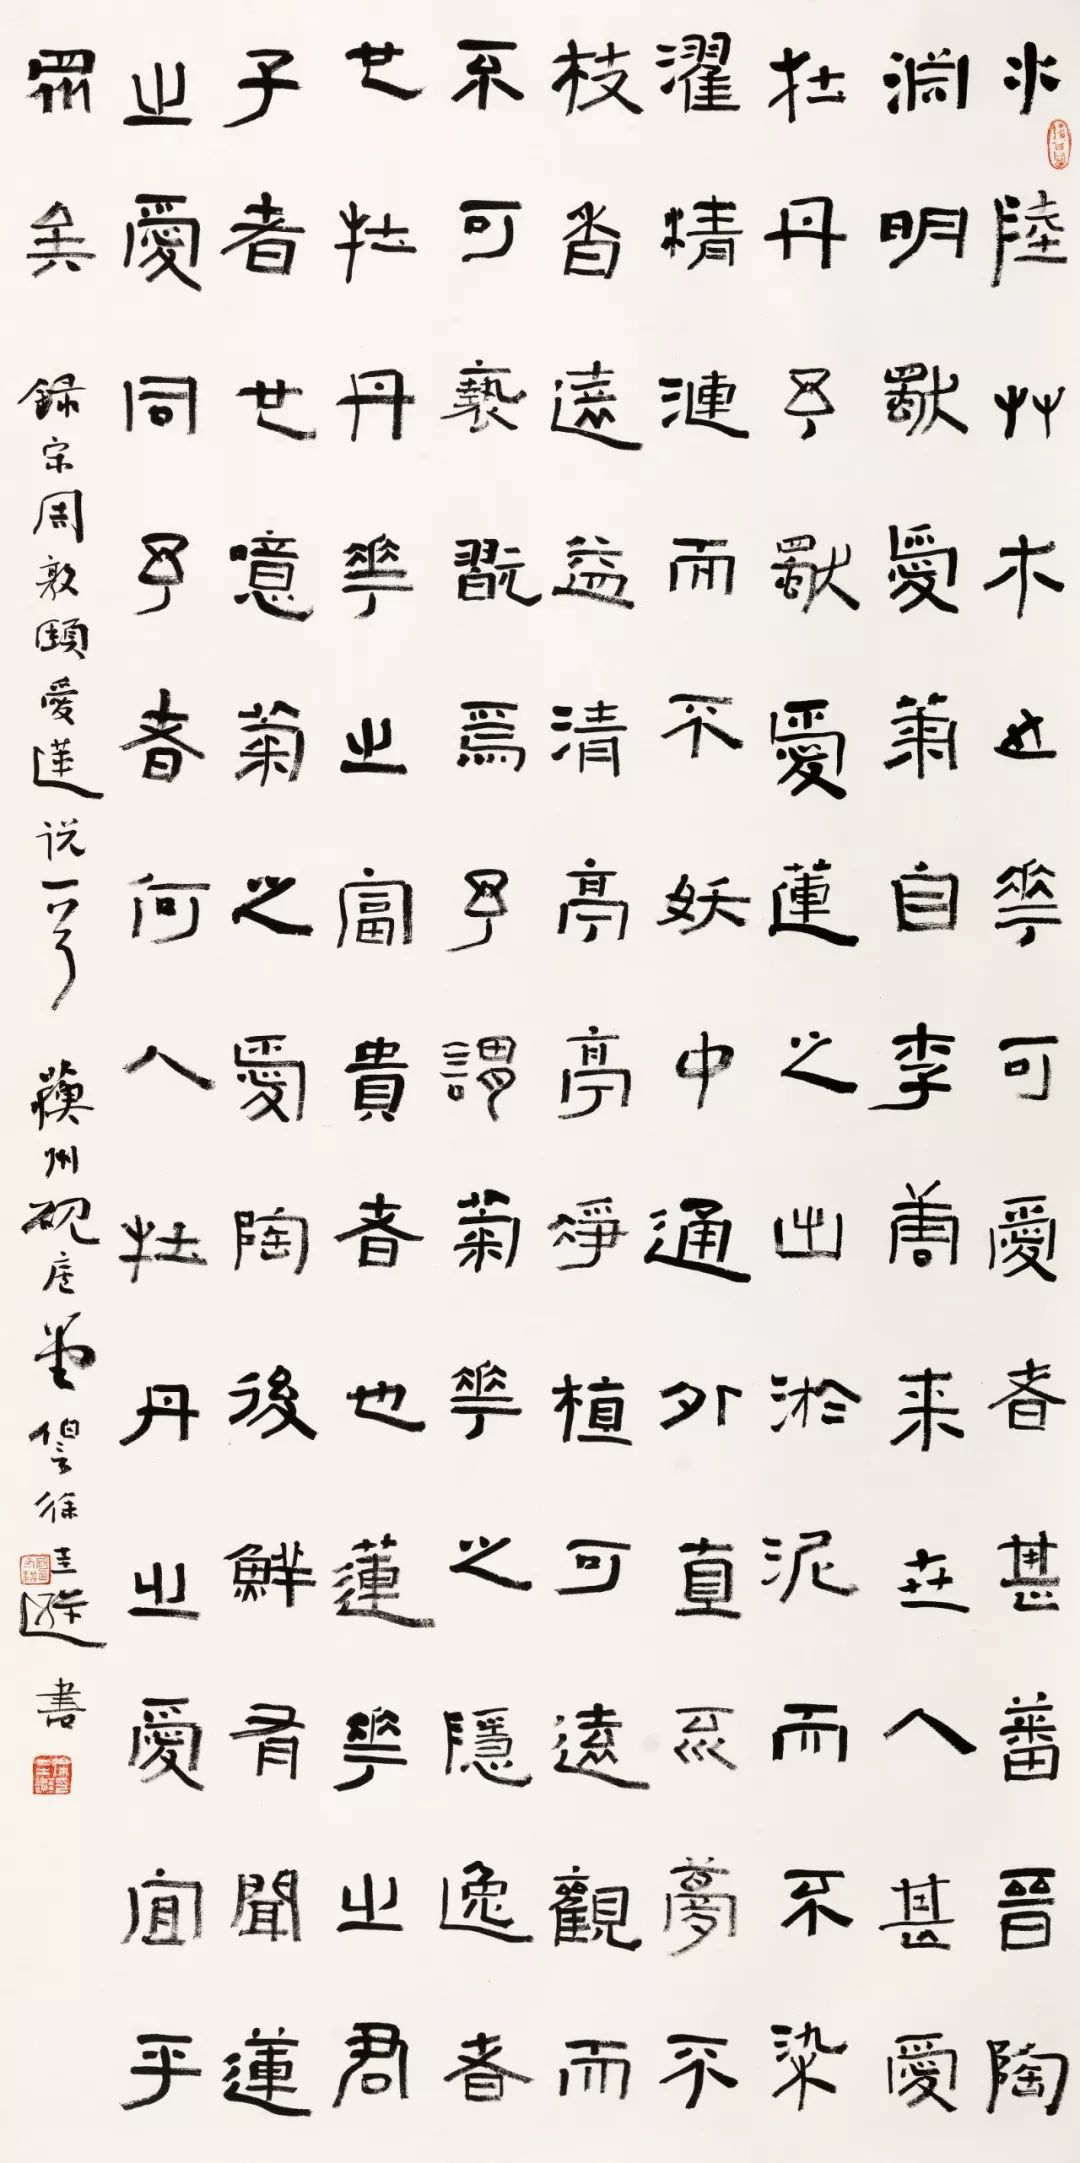 水陸艸木之華可愛者甚蕃晉陶
淵明獨愛菊自李唐来世人甚愛
牡丹予獨愛蓮之出淤泥而不染
濯精漣而不妖中通外直不夢不
枝香遠益清亭亭淨植可遠觀而
不可褻翫焉予謂菊華之隱逸者
也牡丹華之富貴者也蓮華之君
子者也噫菊之愛陶後鮮有聞蓮
之愛同予者何人牡丹之愛宜乎
眾矣 録宋周敦頤愛蓮说一首 蘇州硯 徐圭遜書